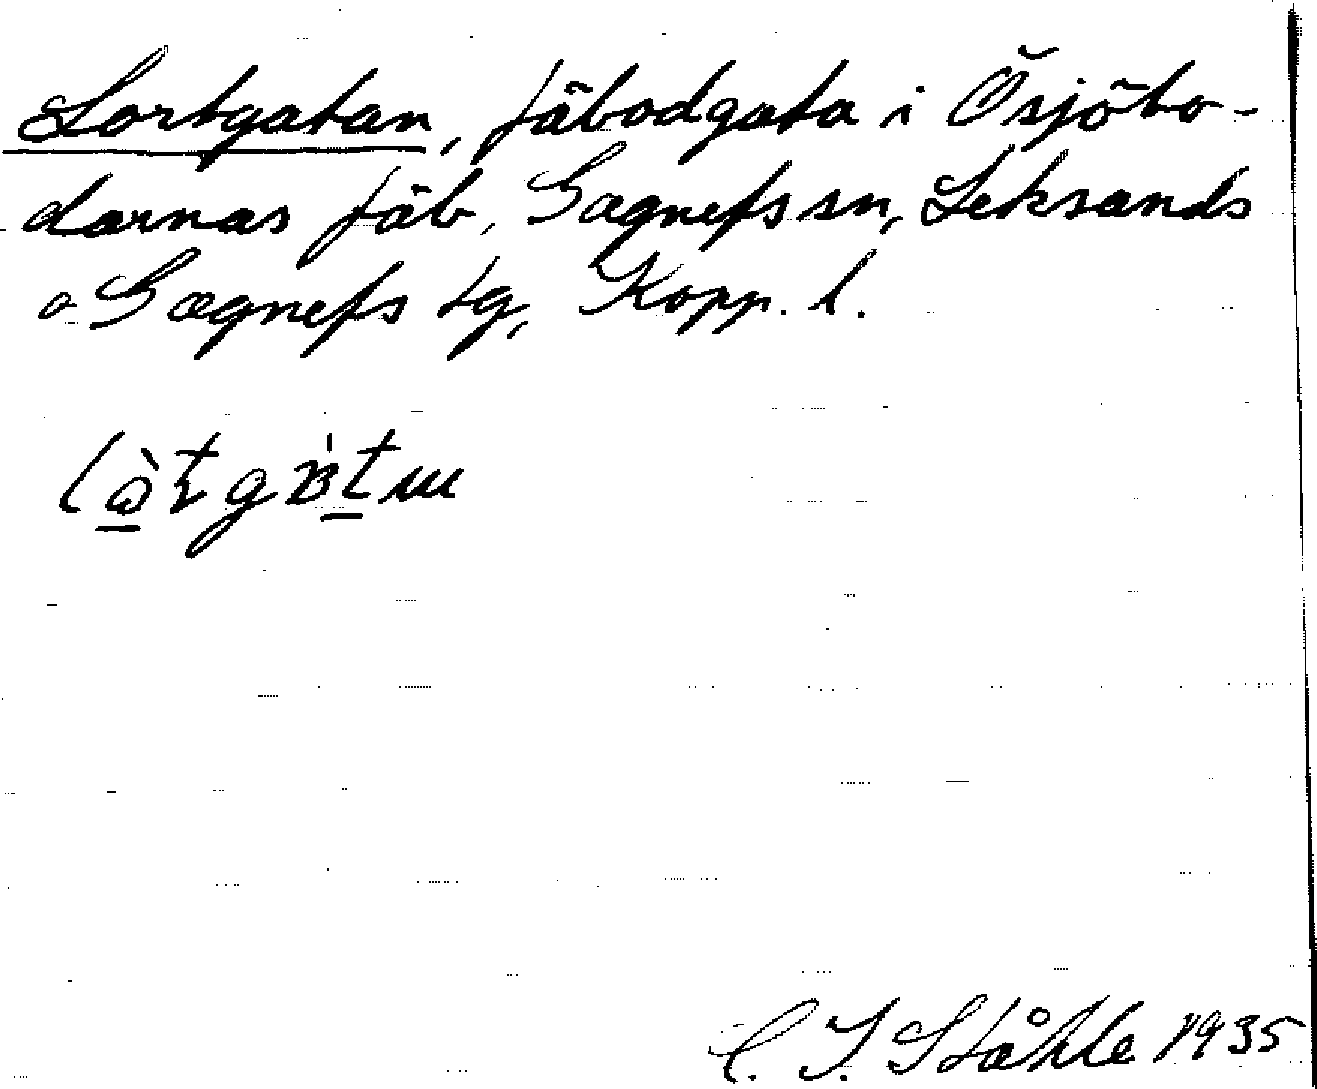 Lortgatan, fäbodgata i Ösjöbo-
darnas fäb, Gagnefs sn, Leksands
o Gagnefs tg, Kopp. l.
C. I. Ståhle 1935